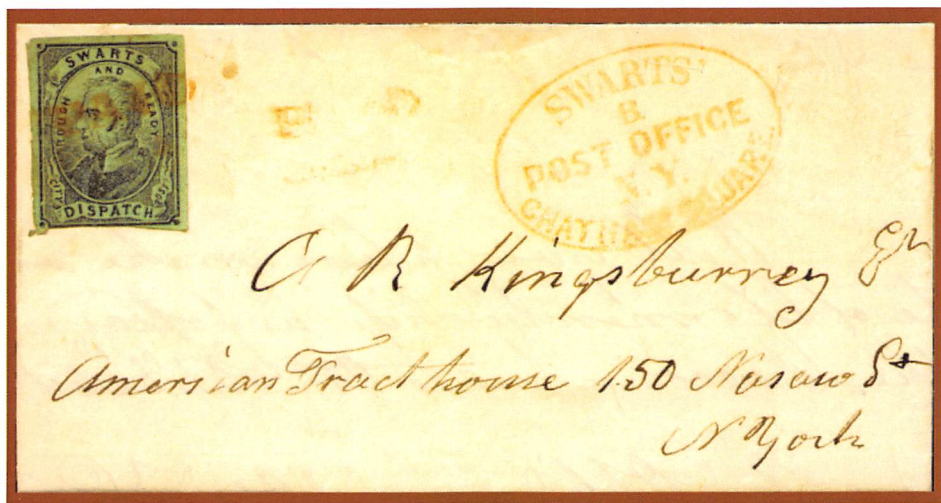 SWARTS
AND
ROUGH READY
CITY POST
DISPATCH
SWARTS'
B.
POST OFFICE
N.Y.
CHATHAM SQUARE
O R Kingsburrey
American Tracthouse 150 Nasaw St
N York